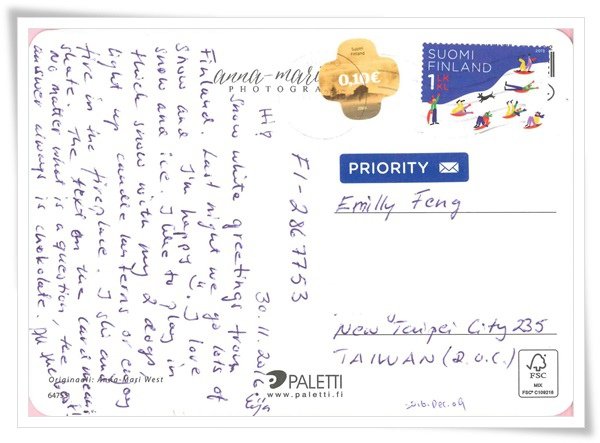 anna-mari
PHOTOGRA
Suomi
Finland
0.10€
SUOMI
FINLAND
1 LK
KL
PRIORITY
FI-2867753
30.11.2016
Hi!
Snow white greetings from
Finland. Last night we go lots of
snow and I'm happy :). I love
snow and ice. I like to play in
thick snow with my 2 dogs,
light up candle lanterns or enjoy
fire in the fireplace. I ski and
skate. The text on the card means:
No matter what is a question, the
answer always is chokolate. All the best!
Eija
Emilly Feng
New Taipei City 235
TAIWAN (R.O.C.)
Originaali: Anna-Mari West
PALETTI
www.paletti.fi
FSC
MIX
FSC® C109218